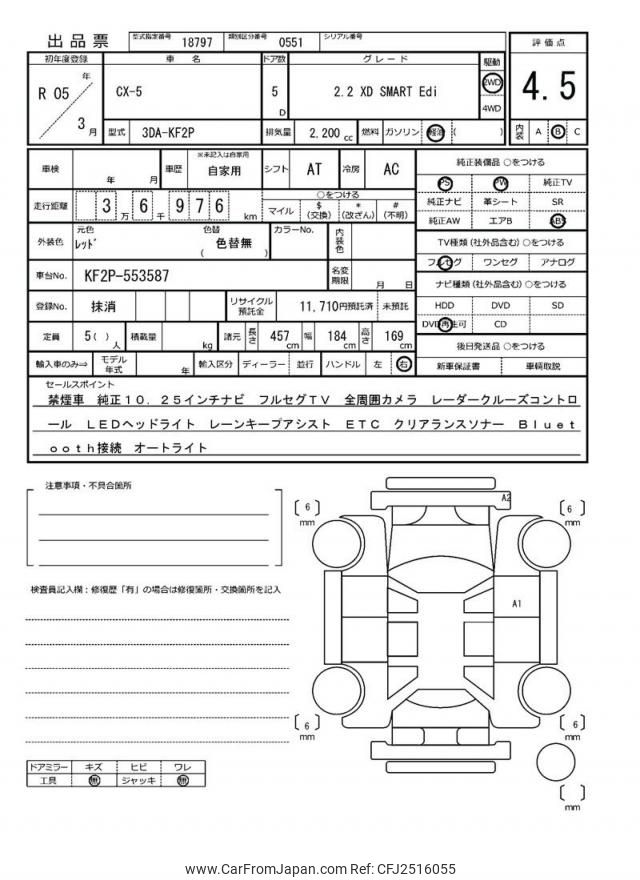 出品票 型式指定番号 18797 類別区分番号 0551 シリアル番号
初年度登録 車名 ドア数 グレード 駆動 評価点
R 05 年 3 月 CX-5 5 D 2.2 XD SMART Edi 2WD 4WD 4.5
型式 3DA-KF2P 排気量 2,200 cc 燃料 ガソリン 軽油 ( ) 内装 A B C
車検 年 月 車歴 ※未記入は自家用 自家用 シフト AT 冷房 AC 純正装備品 ○をつける
PS PW 純正TV
走行距離 3 万 6 千 9 7 6 km ○をつける
マイル $ (交換) * (改ざん) # (不明) 純正ナビ 革シート SR
純正AW エアB ABS
外装色 元色 レッド 色替 色替無 ( ) カラーNo. 内装色 TV種類 (社外品含む) ○をつける
フルセグ ワンセグ アナログ
車台No. KF2P-553587 名変期限 月 日 ナビ種類 (社外品含む) ○をつける
登録No. 抹消 リサイクル預託金 11,710円預託済 未預託 HDD DVD SD
DVD再生可 CD
定員 5( ) 人 積載量 kg 諸元 長さ 457 cm 幅 184 cm 高さ 169 cm 後日発送品 ○をつける
輸入車のみ⇒ モデル年式 年 輸入区分 ディーラー 並行 ハンドル 左 右 新車保証書 車輌取説
セールスポイント
禁煙車 純正10.25インチナビ フルセグTV 全周囲カメラ レーダークルーズコントロ
ール LEDヘッドライト レーンキープアシスト ETC クリアランスソナー Bluet
ooth接続 オートライト
注意事項・不具合箇所
検査員記入欄：修復歴「有」の場合は修復箇所・交換箇所を記入
A2
6 mm 6 mm
A1
6 mm 6 mm
mm
ドアミラー キズ ヒビ ワレ
工具 無 ジャッキ 無
www.CarFromJapan.com Ref: CFJ2516055